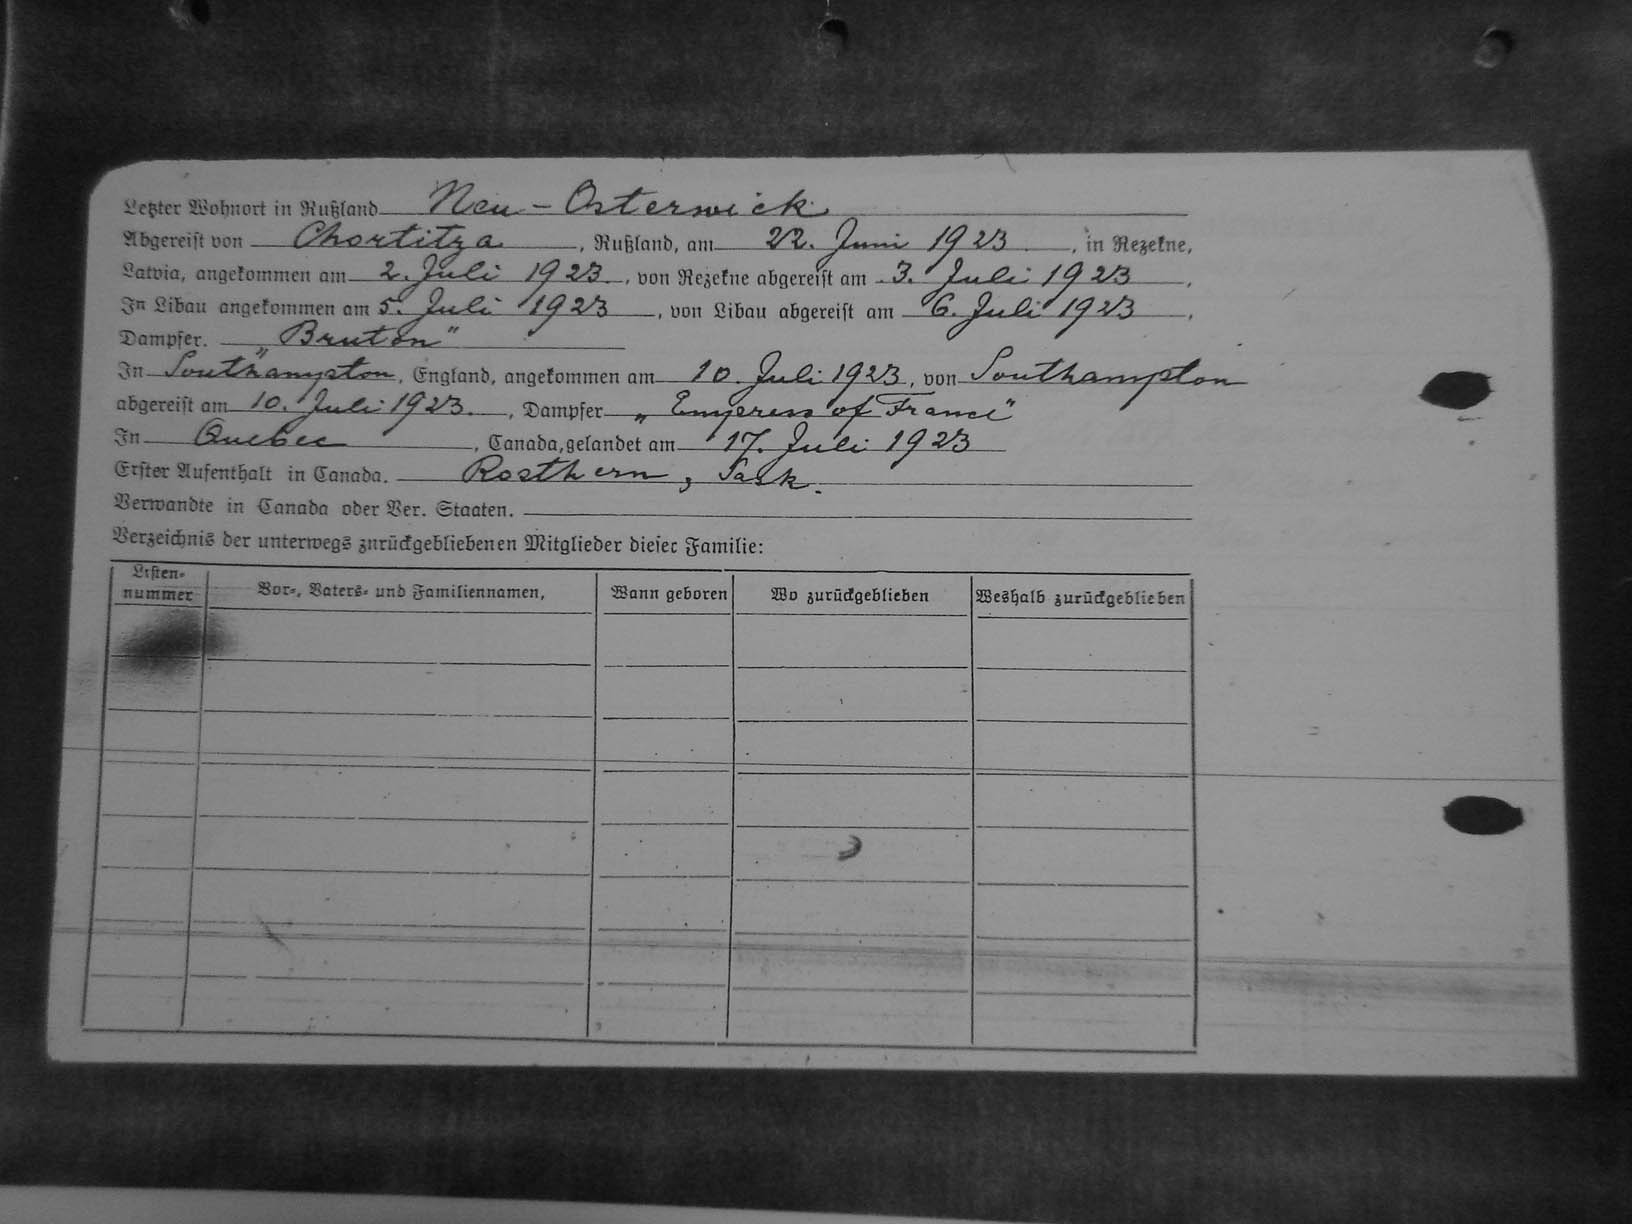 Letzter Wohnort in Rußland Neu-Osterwick
Abgereist von Chortitza, Rußland, am 22. Juni 1923, in Rezekne,
Latvia, angekommen am 2. Juli 1923, von Rezekne abgereist am 3. Juli 1923,
In Libau angekommen am 5. Juli 1923, von Libau abgereist am 6. Juli 1923,
Dampfer. „Bruton"
In Southampton, England, angekommen am 10. Juli 1923, von Southampton
abgereist am 10. Juli 1923, Dampfer „Empress of France"
In Quebec, Canada, gelandet am 17. Juli 1923
Erster Aufenthalt in Canada. Rosthern, Sask.
Verwandte in Canada oder Ver. Staaten.
Verzeichnis der unterwegs zurückgebliebenen Mitglieder dieser Familie:
Listen-
nummer Vor-, Vaters- und Familiennamen, Wann geboren Wo zurückgeblieben Weshalb zurückgeblieben